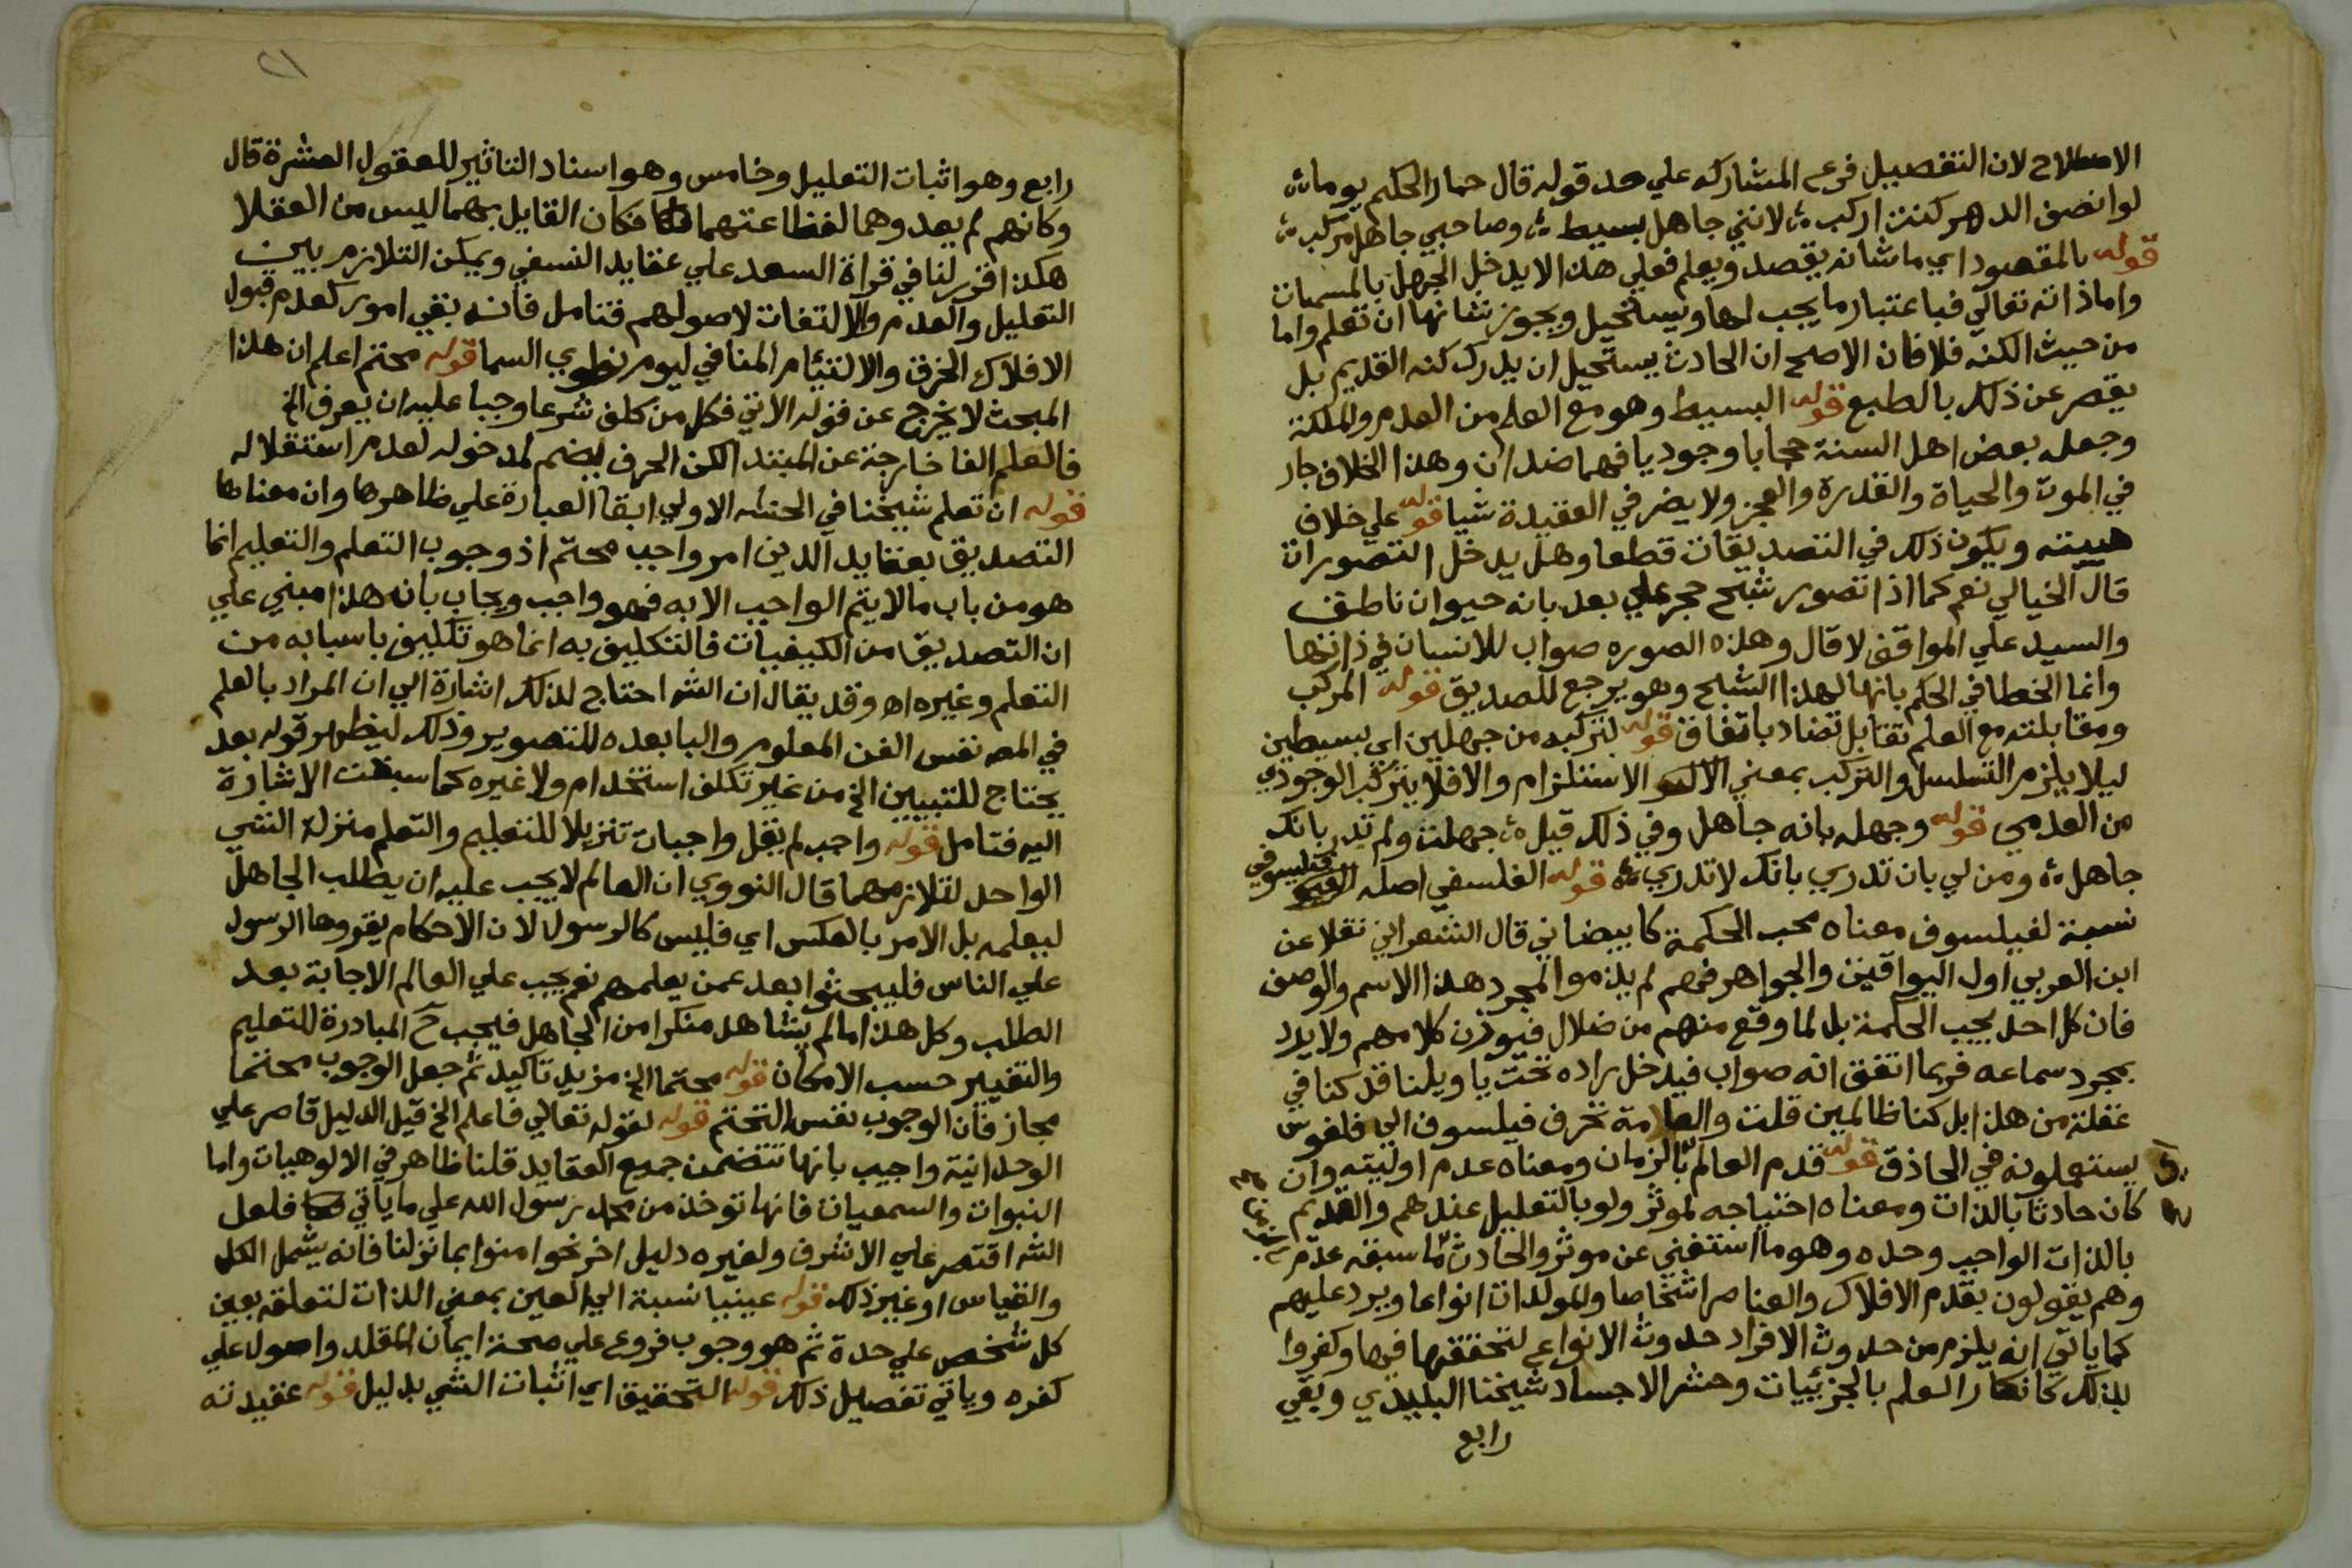 الاصطلاح لان التفصيل فرع المشاركه علي حد قوله قال حمار الحكيم يوما
لو انصف الدهر كنت اركب لانني جاهل بسيط وصاحبي جاهل مركب
قوله بالمقصود اي ما شانه يقصد ويعلم فعلي هذا لا يدخل الجهل بالمسميات
واما ذاته تعالي فباعتبار ما يجب لها ويستحيل ويجوز شانها ان تعلم واما
من حيث الكنه فلا فان الاصح ان الحادث يستحيل ان يدرك كنه القديم بل
يقصر عن ذلك بالطبع قوله البسيط وهو مع العلم من العدم والملكة
وجعله بعض اهل السنة حجابا وجوديا فهما ضدان وهذا الخلاف جار
في الموت والحياة والقدرة والعجز ولا يضر في العقيدة شيا قوله علي خلاف
هيبته ويكون ذلك في التصديقات قطعا وهل يدخل التصورات
قال الخيالي نعم كما اذا تصور شبح حجر علي بعد بانه حيوان ناطق
والسيد علي المواقف لا قال وهذه الصوره صواب للانسان في ذاتها
وانما الخطا في الحكم بانها لهذا الشبح وهو يرجع للصديق قوله المركب
ومقابلته مع العلم تقابل تضاد باتفاق قوله لتركبه من جهلين اي بسيطين
ليلا يلزم التسلسل والتركب بمعني الاستلزام والا فلا يتركب الوجودي
من العدمي قوله وجهله بانه جاهل وفي ذلك قيل جهلت ولم تدر بانك
جاهل ومن لي بان تدري بانك لا تدري قوله الفلسفي اصله الفيلسوفي
نسبة لفيلسوف معناه محب الحكمة كما بيضاني قال الشعراني نقلا عن
ابن العربي اول اليواقيت والجواهر فهم لم يذموا لمجرد هذا الاسم والوصف
فان كل احد يحب الحكمة بل لما وقع منهم من ضلال فيوزن كلامهم ولا يرد
بمجرد سماعه فربما اتفق انه صواب فيدخل راده تحت يا ويلنا قد كنا في
غفلة من هذا بل كنا ظالمين قلت والعامة تحرف فيلسوف الي فلفوس
يستعملونه في الحاذق قوله قدم العالم بالزمان ومعناه عدم اوليته وان
كان حادثا بالذات ومعناه احتياجه لموثر ولو بالتعليل عندهم والقديم
بالذات الواجب وحده وهو ما استغني عن موثر والحادث ما سبقه عدم
وهم يقولون بقدم الافلاك والعناصر اشخاصا والمولدات انواعا ويرد عليهم
كما ياتي انه يلزم من حدوث الافراد حدوث الانواع لتحققها فيها وكفروا
بذلك كانكار العلم بالجزئيات وحشر الاجساد شيخنا البليدي وبقي
رابع
رابع وهو اثبات التعليل وخامس وهو اسناد التاثير للعقول العشرة قال
وكانهم لم يعدوهما لفظاعتهما فكان القايل بهما ليس من العقلا
هكذا قرر لنا في قراة السعد علي عقايد النسفي ويمكن التلازم بين
التعليل والقدم والالتفات لاصولهم فتامل فانه بقي امور كعدم قبول
الافلاك الخرق والالتيام المنافي ليوم نطوي السما قوله محتم اعلم ان هذا
المبحث لا يخرج عن قوله الاتي فكل من كلف شرعا وجبا عليه ان يعرف الخ
فالعلم الفا خارجة عن المبتدا لكن الحرف يضم لمدخوله لعدم استقلاله
قوله ان تعلم شيخنا في الحاشيه الاولي ابقا العبارة علي ظاهرها وان معناها
التصديق بعقايد الدين امر واجب محتم اذ وجوب التعلم والتعليم انما
هو من باب ما لا يتم الواجب الا به فهو واجب ويجاب بان هذا مبني علي
ان التصديق من الكيفيات فالتكليف به انما هو تكليف باسبابه من
التعلم وغيره اه وقد يقال ان الشه احتاج لذلك اشارة الي ان المراد بالعلم
في المص نفس الفن المعلوم والبا بعده للتصوير وذلك ليظهر قوله بعد
يحتاج للتبيين الخ من غير تكلف استخدام ولا غيره كما سبقت الاشارة
اليه فتامل قوله واجب لم يقل واجبات تنزيلا للتعليم والتعلم منزلة الشي
الواحد لتلازمهما قال النووي ان العالم لا يجب عليه ان يطلب الجاهل
ليعلمه بل الامر بالعكس اي فليس كالرسول لان الاحكام يقررها الرسول
علي الناس فليبحثوا بعد عمن يعلمهم نعم يجب علي العالم الاجابة بعد
الطلب وكل هذا ما لم يشاهد منكرا من الجاهل فيجب ح المبادرة للتعليم
والتغيير حسب الامكان قوله محتما الخ مزيد تاكيد ثم جعل الوجوب محتما
مجاز فان الوجوب نفس التحتم قوله لقوله تعالي فاعلم الخ قيل الدليل قاصر علي
الوحدانية واجيب بانها تتضمن جميع العقايد قلنا ظاهر في الالوهيات واما
النبوات والسمعيات فانها توخذ من محمد رسول الله علي ما ياتي فلعل
الشه اقتصر علي الاشرف ولغيره دليل اخر نحو امنوا بما نزلنا فانه يشمل الكل
والقياس او غير ذلك قوله عينيا نسبة الي العين بمعني الذات لتعلقه بعين
كل شخص علي حدة ثم هو وجوب فروع علي صحة ايمان المقلد واصول علي
كفره وياتي تفصيل ذلك قوله التحقيق اي اثبات الشي بدليل قوله عقيدته